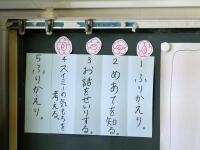 1 ふりかえり。
2 めあてを知る。
3 お話をせいりする。
4 スイミーの気もちを
考える。
5 ふりかえり。